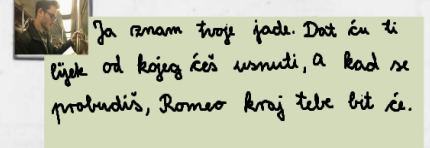 Ja znam tvoje jade. Dat ću ti
lijek od kojeg ćeš usnuti, a kad se
probudiš, Romeo kraj tebe bit će.